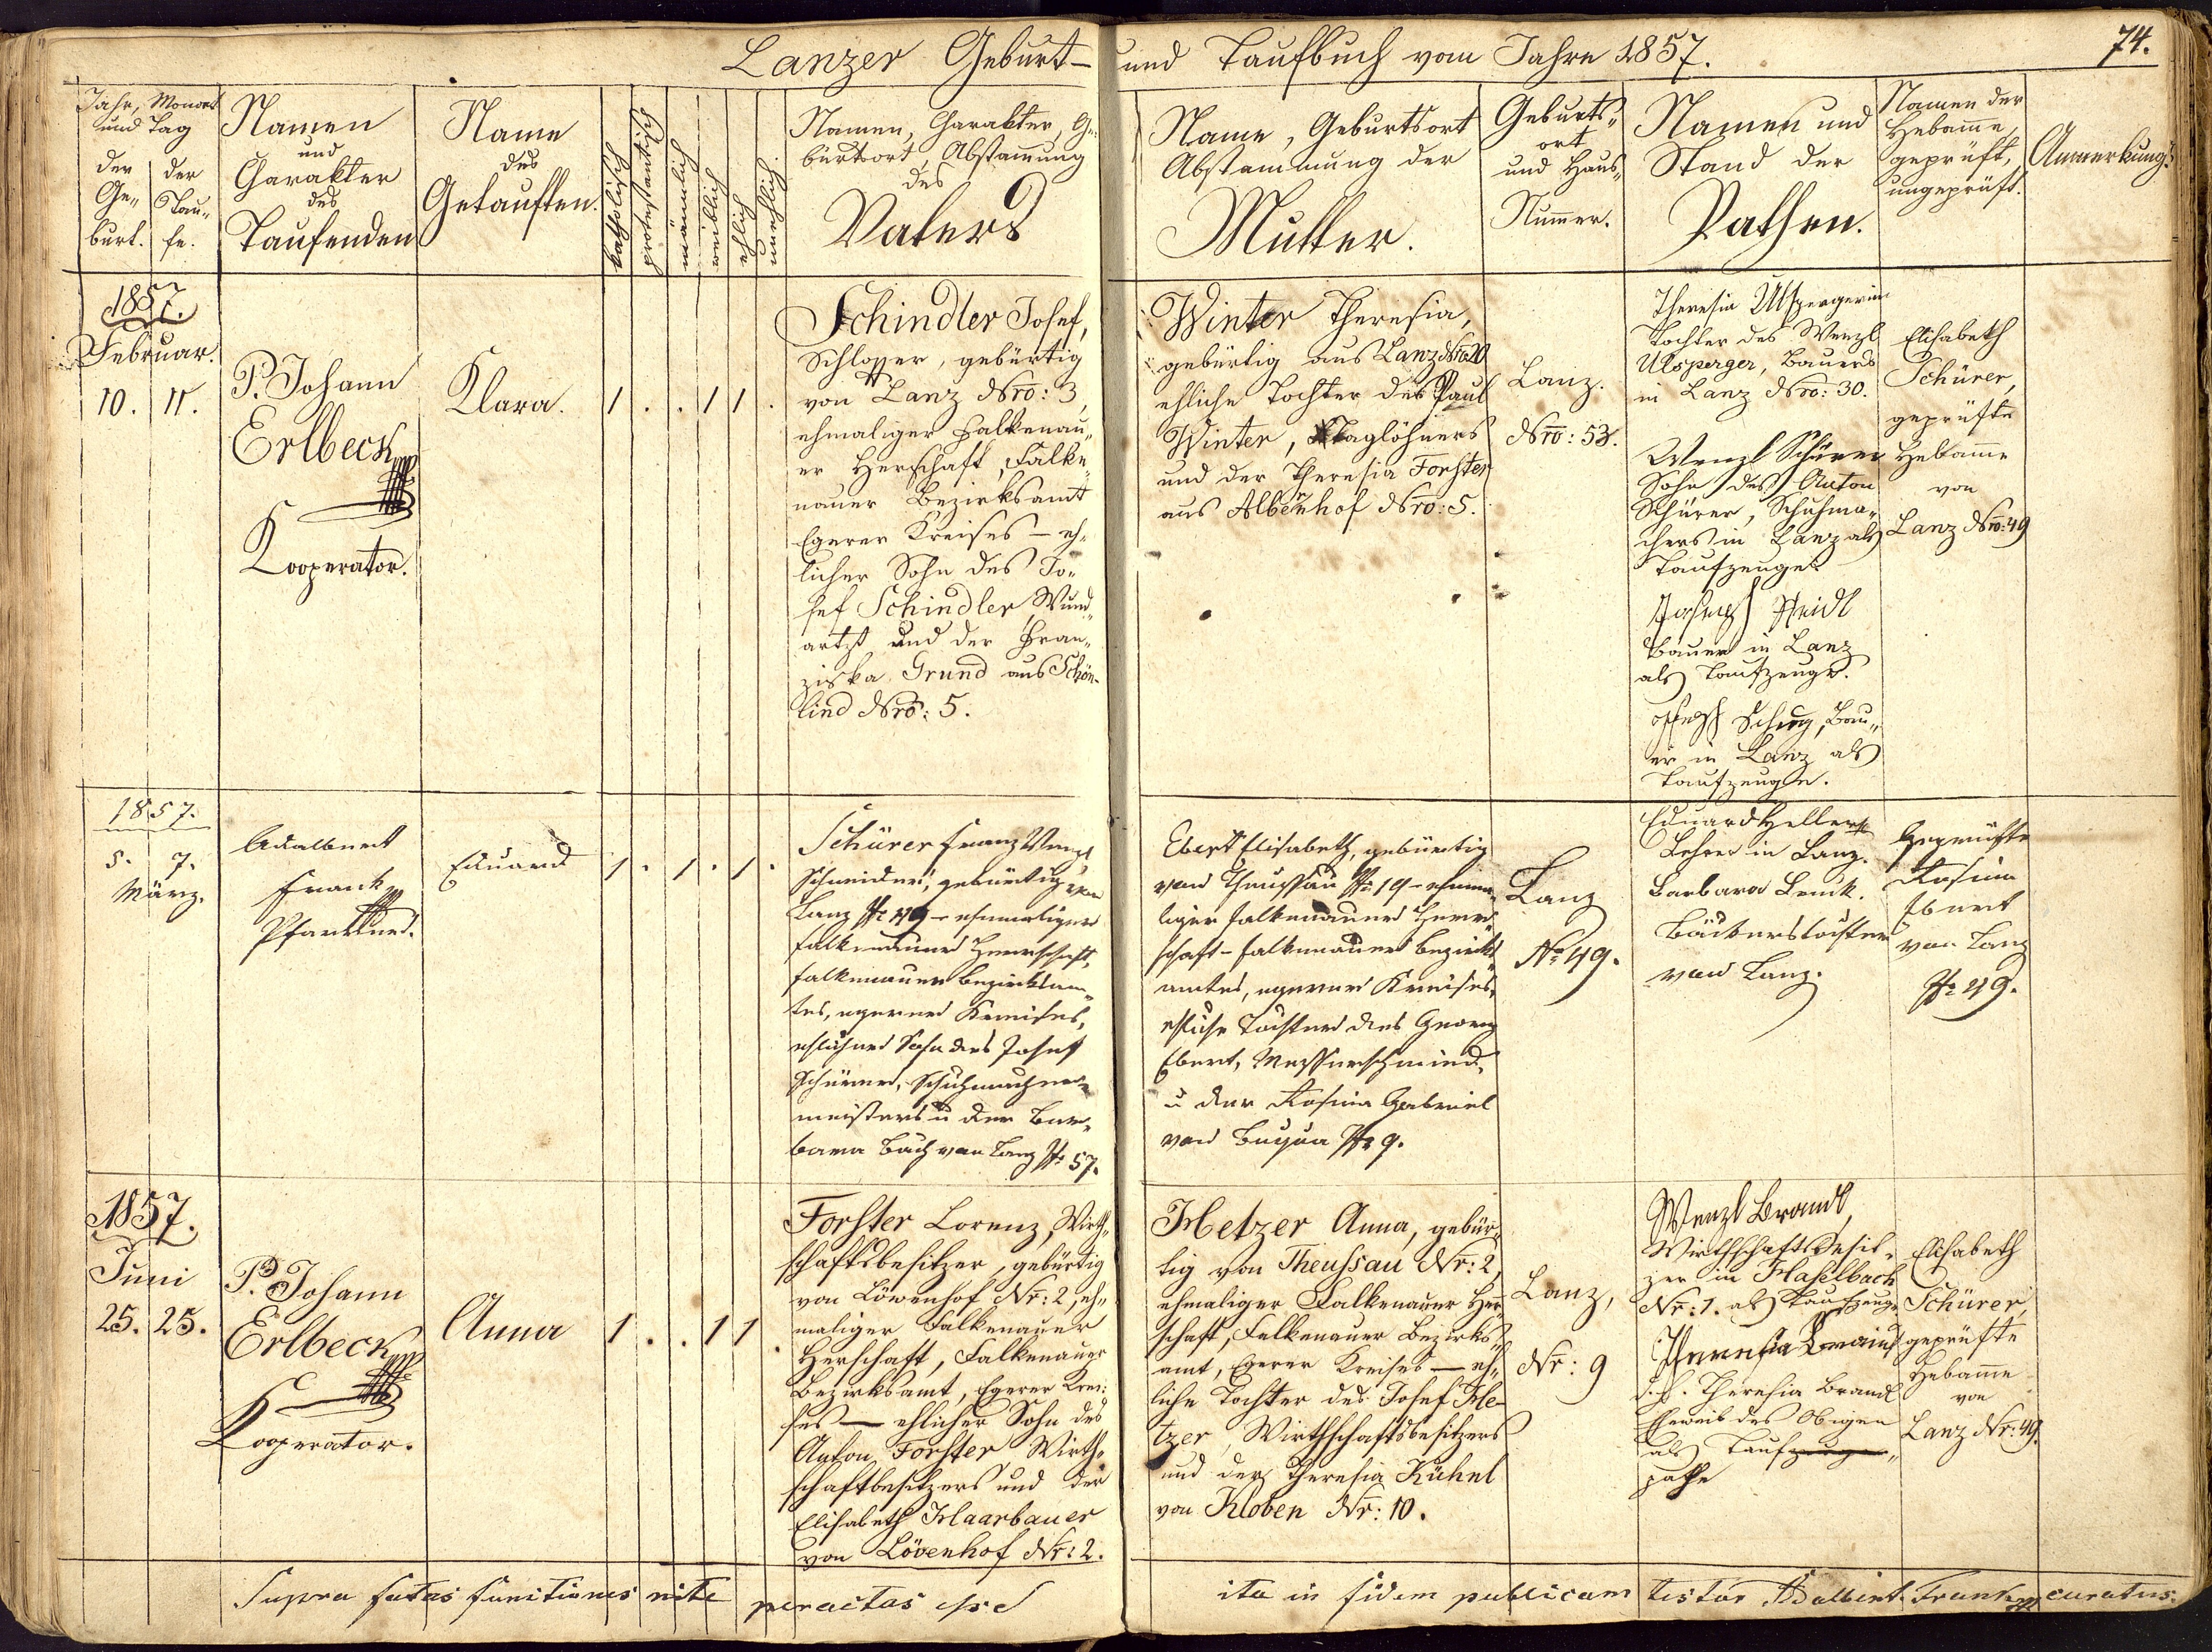 Lanzer Geburt- und Taufbuch vom Jahre 1857.
74.
Jahr, Monat
und Tag
der
Ge-
burt.
der
Tau-
fe.
Namen
und
Charakter
des
Taufenden
Name
des
Getauften.
katholisch
protestantisch
männlich
weiblich
ehlich
unehlich
Namen, Charakter, Ge-
burtsort, Abstam̅ung
des
Vaters
Name, Geburtsort
Abstammung der
Mutter.
Geburts-
ort
und Haus-
Num̅er.
Namen und
Stand der
Pathen.
Namen der
Hebam̅e,
geprüft,
ungeprüft.
Anmerkung.
1857.
Februar.
10. 11.
P. Johann
Erlbeck
Kooperator.
Klara.
1 . . 1 1 .
Schindler Josef,
Schlosser, gebürtig
von Lanz Nro: 3,
ehmaliger Falkenau-
er Herschaft, Falke-
nauer Bezirksamt
Egerer Kreises – eh-
licher Sohn des Jo-
sef Schindler, Wund-
artzt und der Fran-
ziska Grund aus Schön-
lind Nro: 5.
Winter Theresia,
gebürtig aus Lanz Nro 20
ehliche Tochter des Paul
Winter, Taglöhners
und der Theresia Forster
aus Albenhof Nro: 5.
Lanz.
Nro: 53.
Theresia Ulspergerin
Tochter des Wenzl
Ulsperger, Bauers
in Lanz Nro: 30.
Wenzl Schürer
Sohn des Anton
Schürer, Schuhma-
chers in Lanz als
Taufzeuge
Joseph Heidl
Bauer in Lanz
als Taufzeuge.
Bau-
er in Lanz als
Taufzeuge.
Elisabeth
Schürer,
geprüfte
Hebam̅e
von
Lanz Nro: 49
1857.
5. 7.
März.
Adalbert
Frank
Pfarrer.
Eduard
1 . 1 . 1 .
Schürer Franz Wenzl
Schneider, gebürtig von
Lanz N: 49 – ehemaliger
Falkenauer Herrschaft,
Falkenauer Bezirksam-
tes, egerer Kreises,
ehlicher Sohn des Josef
Schürer, Schuhmacher-
meisters u der Bar-
bara Bach von Lanz N: 57.
Ebert Elisabeth, gebürtig
von Theussau N: 19 – ehema-
liger Falkenauer Herr-
schaft – Falkenauer Bezirks-
amtes, egerer Kreises,
ehliche Tochter des Georg
Ebert, Messerschmied,
u der Rosina Gabriel
von Bukwa N: 9.
Lanz
No 49.
Eduard Heller
Lehrer in Lanz.
Barbara Lenk.
Bäckerstochter
von Lanz.
Geprüfte
Rosina
Ebert
von Lanz
N: 49.
1857.
Juni
25. 25.
P. Johann
Erlbeck
Kooperator.
Anna
1 . . 1 1 .
Forster Lorenz, Wirth-
schaftsbesitzer, gebürtig
von Löwenhof Nr: 2, eh-
maliger Falkenauer
Herschaft, Falkenauer
Bezirksamt, Egerer Krei-
ses – ehlicher Sohn des
Anton Forster, Wirth-
schaftbesitzers und der
Elisabeth Haarbauer
von Lövenhof Nr: 2.
Hetzer Anna, gebür-
tig von Theussau Nr: 2,
ehmaliger Falkenauer Her-
schaft, Falkenauer Bezirks-
amt, Egerer Kreises – eh-
liche Tochter des Josef He-
tzer, Wirthschaftsbesitzers
und der Theresia Kühnl
von Kloben Nr: 10.
Lanz,
Nr: 9
Wenzl Brandl,
Wirthschaftsbesit-
zer in Haselbach
Nr: 1. als Taufzeuge
Theresia
d. h. Theresia Brandl
Eheweib des Obigen
als Taufzeuge
pathe
Elisabeth
Schürer,
geprüfte
Hebam̅e
von
Lanz Nr: 49.
Supra fatas functiones rite peractas esse ita in fidem publicam testor Adalbert Frank curatus.